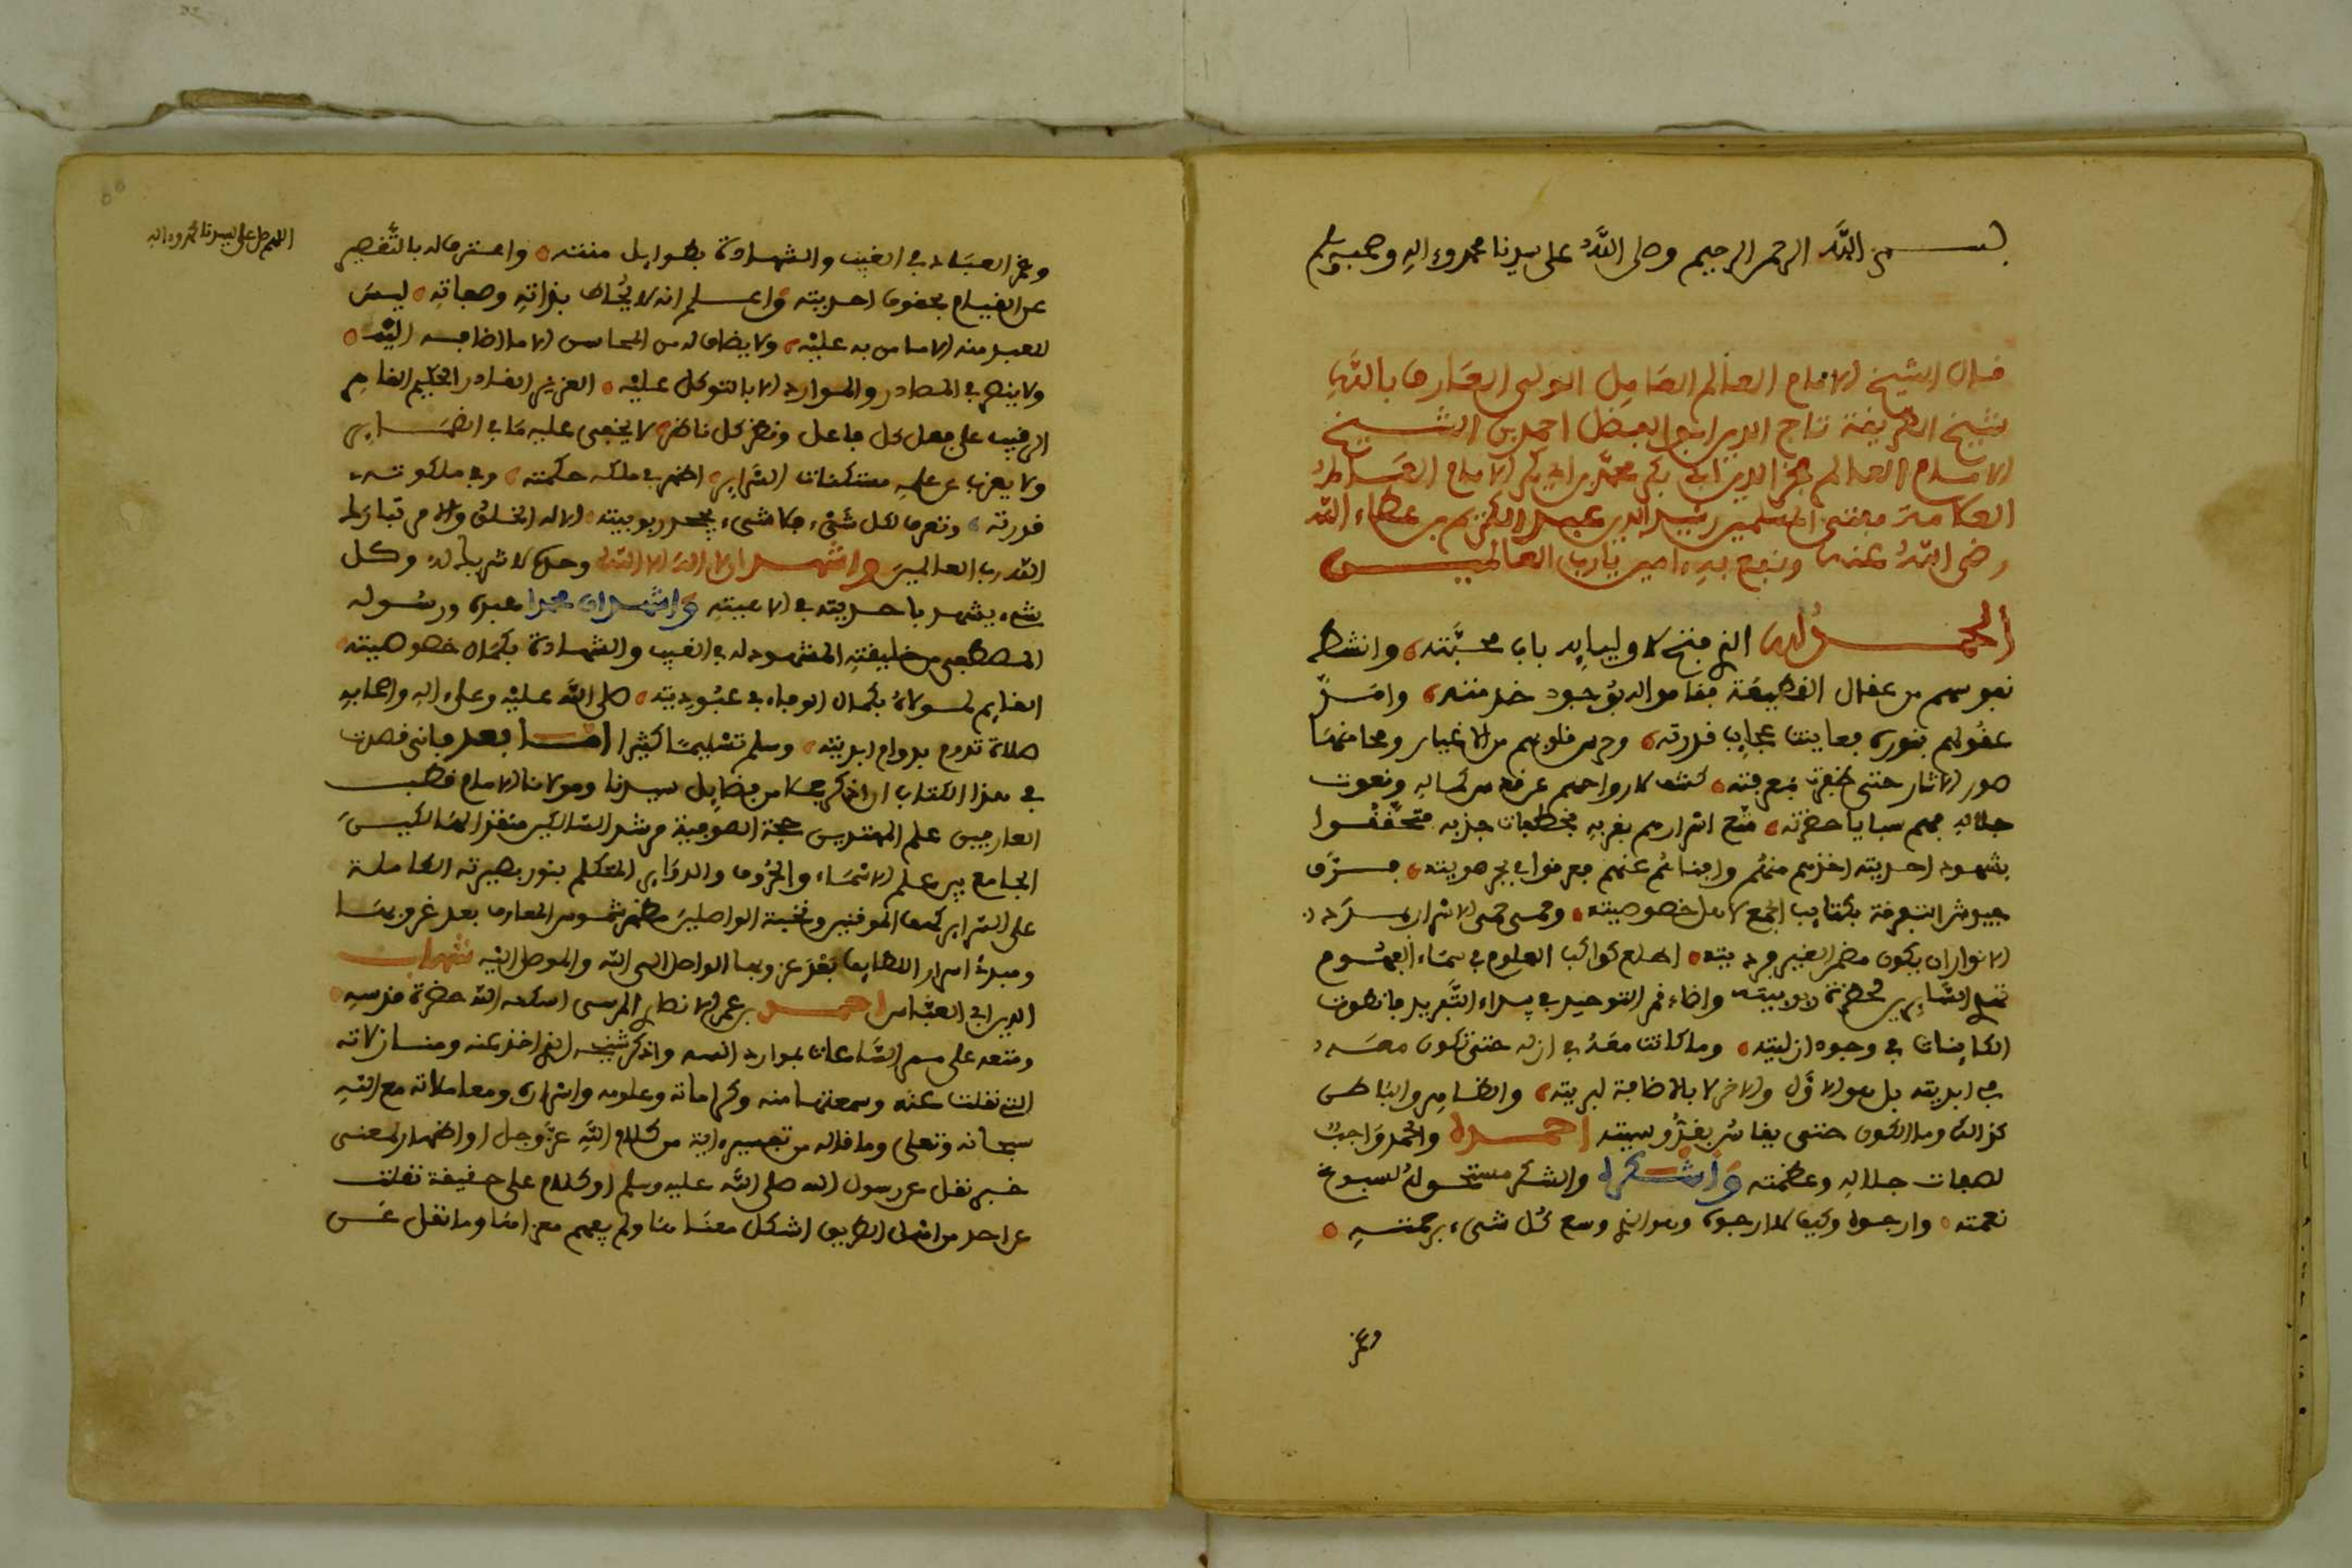 بسم الله الرحمن الرحيم وصلى الله على سيدنا محمد وءاله وصحبه وسلم
قال الشيخ الامام العالم العامل الولى العارف بالله
شيخ الطريقة تاج الدين ابو الفضل احمد بن الشيخ
الامام العالم فخر الدين ابى بكر محمد بن ابى بكر الامام
العلامة مفتى المسلمين رشيد الدين عبد الكريم بن عطاء الله
رضى الله عنه ونفع به ءامين يارب العالميـن
الحمد لله الذى فتح لاوليايه باب محبته وانشط
نفوسهم من عقال القطيعة فقاموا له بوجود خدمته وامد
عقولهم بنوره فعاينت عجايب قدرته وحرس قلوبهم من الاغيار ومحا منها
صور الاثار حتى ظفرت بمعرفته كشف لارواحهم عن قدس كماله ونعوت
جلاله فهم سبايا حضرته متع اسرارهم بقربه بخطفات جذبه فتحققوا
بشهود احديته اخذهم منهم وافناهم عنهم فغرقوا في بحر هويته مـزق
جيوش التفرقة بكتايب الجمع لاهل خصوصيته وحمى حمى الاسرار
الانوار ان يكون مضمر الغير فرديته اطلع كواكب العلوم في سماء الفهوم
السايرين لحضرة ربوبيته واضاء قمر التوحيد في بيداء التفريد فانطوت
الكاينات في وجود ازليته وما كانت معه في ازله حتى تكون معـه
في ابديته بل هو الاول والاخر لا بالاضافة لبريته والظاهر والباطن
كذالك وما الكون حتى يقاس بقدوسيته احمـده والحمد واجب
لصفات جلاله وعظمته واشـكره والشكر مستحق له لسبوغ
نعمته وارجوه وكيف لا ارجوه وهو الذى وسع كل شىء برحمته
وغمر
اللهم صل على سيدنا محمد وءاله
وغمر العباد في الغيب والشهادة بطوايل منته واعترف له بالتقصير
عن القيام بحقوق احديته واعـلم انه لا يحاط بذاته وصفاته ليس
للعبد منه الا ما من به عليه ولا يضاف له من المحاسن الا ما اضافه اليه
ولا ينصر في المصادر والموارد الا بالتوكل عليه العزيز القادر الحكيم القاهر
الرقيب على فعل كل فاعل ونظر كل ناظر لا يخفى عليه ما في الضمـاير
ولا يعزب عن علمه مستكنات السراير اظهر في ملكه حكمته وفي ملكوته
قدرته وتعرف لكل شىء فلا شىء يجحد ربوبيته الا له الخلق والامر تبارك
الله رب العالمين واشهـد ان لا اله الا الله وحده لا شريك له وكـل
شىء يشهد باحديته في الاهيته واشهد ان محمدا عبده ورسوله
المصطفى من خليقته المشهود له في الغيب والشهادة بكمال خصوصيته
القايم لمولاه بكمال الوفاء في عبوديته صلى الله عليه وعلى ءاله واصحابه
صلاة تدوم بدوام ابديته وسلم تسليما كثيرا امـا بعد فانى قصدت
في هذا الكتاب ان اذكر جملا من فضايل سيدنا ومولانا الامام قطب
العارفين علم المهتدين حجة الصوفية مرشد السالكين منقذ الهالكيـن
الجامع بين علم الاسماء والحروف والدواير المتكلم بنور بصيرته الكاملة
على السراير كهف الموقنين ونخبة الواصلين مظهر شموس المعارف بعد غروبها
ومبدئ اسرار اللطايف بعد عزوبها الواصل الى الله والموصل اليه شهاب
الدين ابى العباس احمـد بن عمر الانصارى المرسى اسكنه الله حضرة قدسه
ومتعه على ممر الساعات بموارد انسه واذكر شيخه الذى اخذ عنه ومنازلاته
التى نقلت عنه وسمعتها منه وكراماته وعلومه واسراره ومعاملاته مع الله
سبحانه وتعلى وما قاله من تفسير ءاية من كلام الله عز وجل او اظهار لمعنى
خبر نقل عن رسول الله صلى الله عليه وسلم او كلام على حقيقة نقلت
عن احد من اهل الطريق اشكل معناها ولم يفهم مغزاها وما نقل عـن